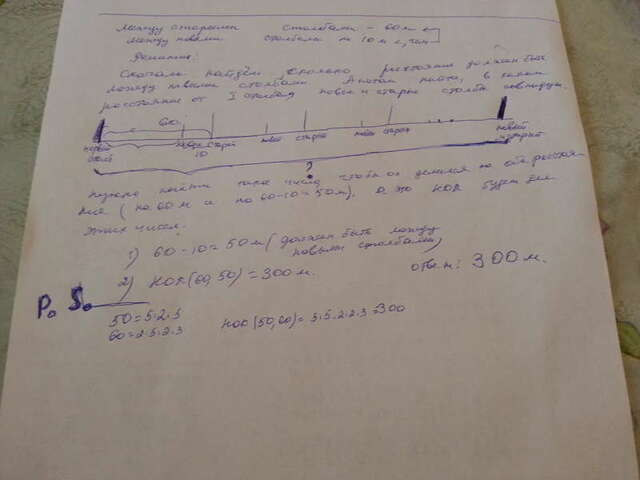 Между старыми столбами - 60 м
Между новыми столбами на 10 м <, чем
Решение:
Сначала найдём, сколько расстояние должно быть
между новыми столбами. А потом найти, в каком
расстоянии от I столба новый и старый столбы совпадут.
60
первый столб новый старый новый старый новый старый ... новый и старый
10
?
Нужно найти такое число, чтоб он делился на оба расстоя-
ния (на 60 м и на 60-10=50 м), а это НОК будет для
этих чисел.
1) 60-10=50 м (должен быть между
новыми столбами)
2) НОК(60,50)=300 м.
Ответ: 300 м.
P. S.
50=5·2·5
60=2·5·2·3
НОК(50,60)=5·5·2·2·3=300